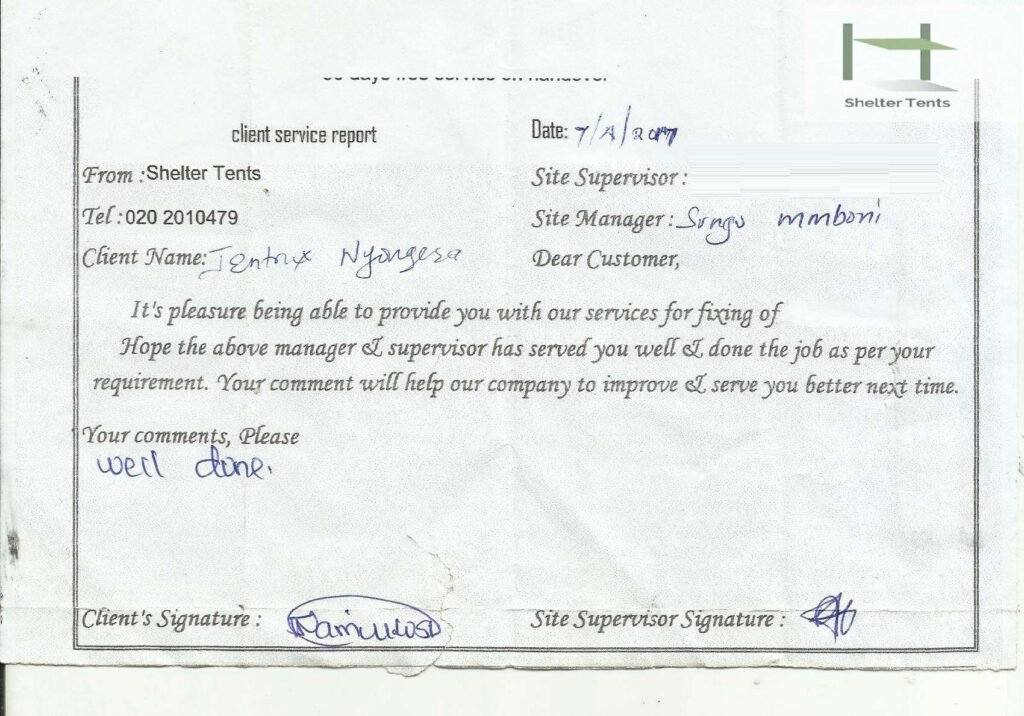 Shelter Tents
client service report
Date: 7/4/2017
From : Shelter Tents
Site Supervisor :
Tel : 020 2010479
Site Manager : Sungu mmboni
Client Name: Jentrix Nyongesa
Dear Customer,
It's pleasure being able to provide you with our services for fixing of
Hope the above manager & supervisor has served you well & done the job as per your
requirement. Your comment will help our company to improve & serve you better next time.
Your comments, Please
well done.
Client's Signature :
Site Supervisor Signature :